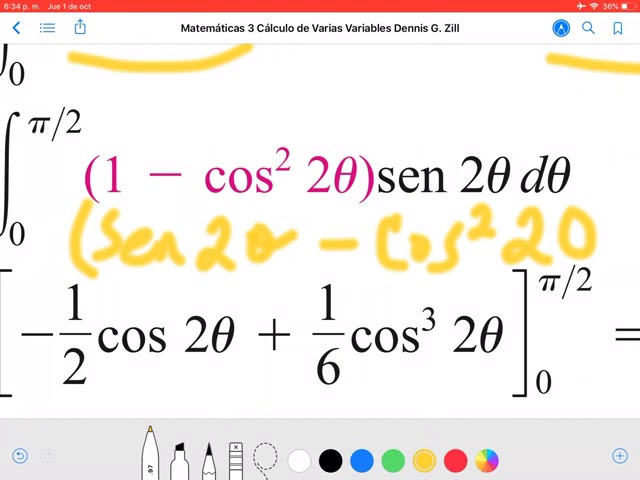 6:34 p. m. Jue 1 de oct 36%
Matemáticas 3 Cálculo de Varias Variables Dennis G. Zill
0
∫₀^{π/2} (1 − cos² 2θ)sen 2θ dθ
(Sen 2θ − Cos² 2θ
[−1/2 cos 2θ + 1/6 cos³ 2θ]₀^{π/2} =
.97